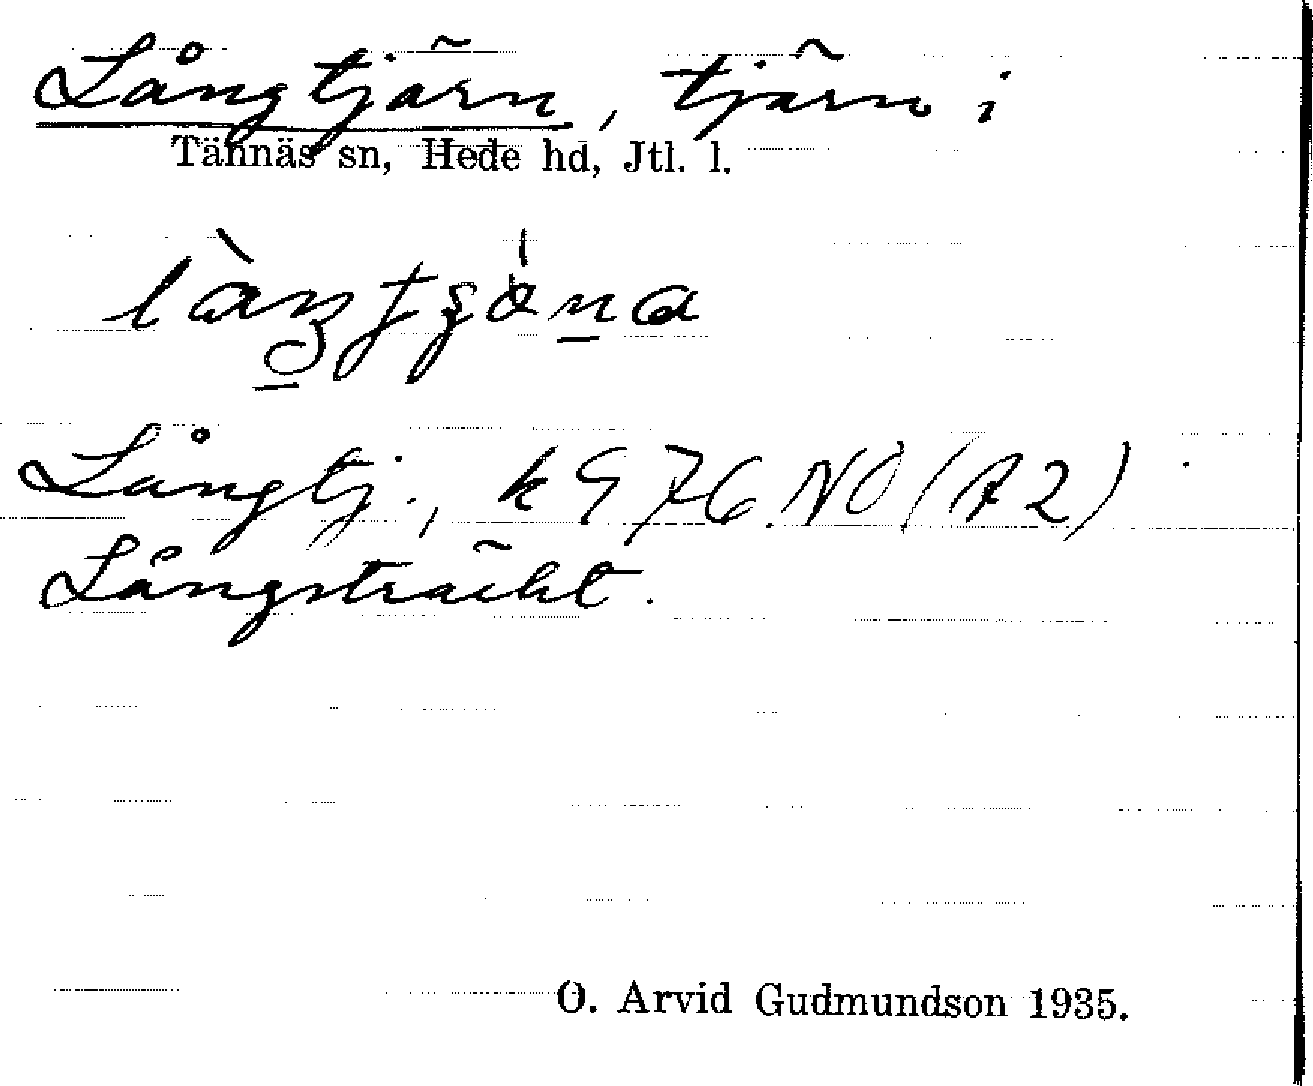 Långtjärn, tjärn i
Tännäs sn, Hede hd, Jtl. l.
Långtj., k G 76 NO (A2)
Långsträckt.
O. Arvid Gudmundson 1935.